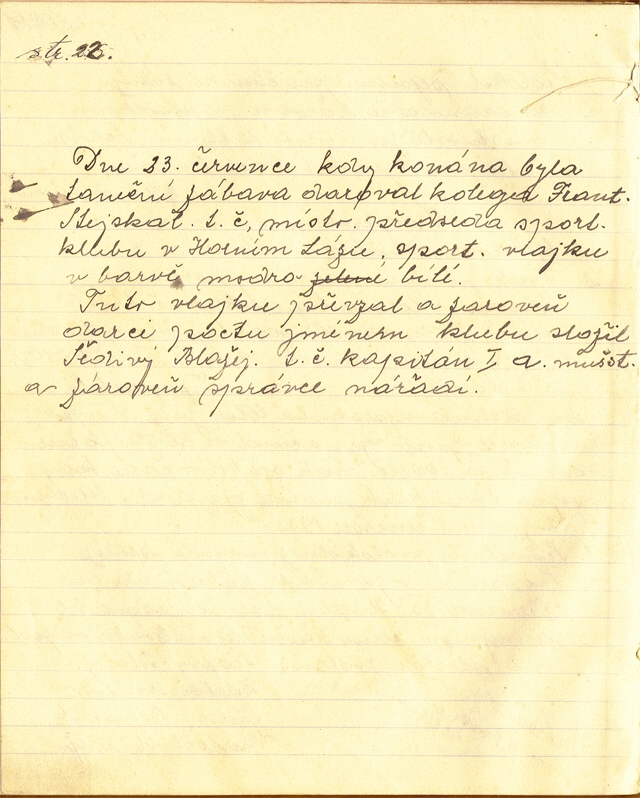 str. 22.
Dne 23. července kdy konána byla
taneční zábava daroval kolega Frant.
Stejskal. t. č. místo. předseda sport.
klubu v Horním Lažu, sport. vlajku
v barvě modro zelené bílí.
Tuto vlajku převzal a zaroveň
darci poctu jménem klubu složil
Šedivý Blažej. t. č. kapitán I a. mušst.
a zároveň správce nářadí.